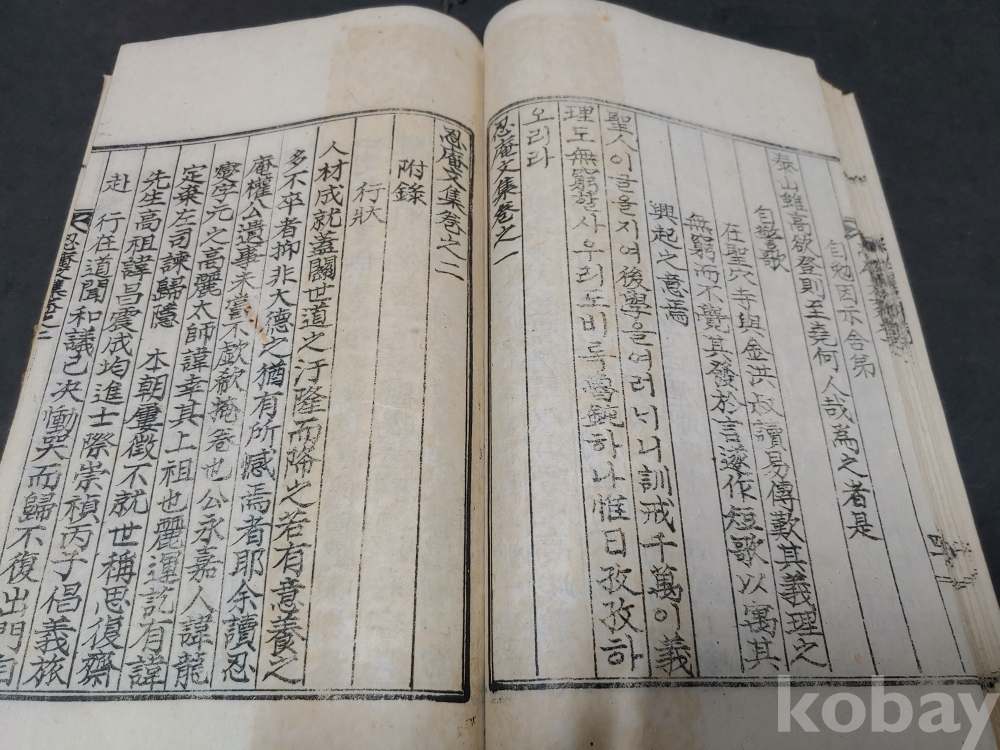 自勉因示舍弟
泰山雖高欲登則至堯何人哉為之者是
自警歌
在聖穴寺與金洪叔讀易傳歎其義理之
無窮而不覺其發於言遂作短歌以寓其
興起之意焉
聖人이글을지여後學을여러너니訓戒千萬이義
理도無窮할사우리도비록魯鈍하나惟日孜孜하
오리라
忍庵文集卷之一
忍庵文集卷之二
附錄
行狀
人材成就蓋關世道之汙隆而降之若有意養之
多不卒者抑非大德之猶有所憾焉者耶余讀忍
庵權公遺事未嘗不歔欷掩卷也公永嘉人諱龍
燮字元之高麗太師諱幸其上祖也麗運訖有諱
定棄左司諫歸隱 本朝屢徵不就世稱思復齋
先生高祖諱昌震成均進士際崇禎丙子倡義旅
赴 行在道聞和議已決慟哭而歸不復出門自
忍庵文集卷之二
kobay